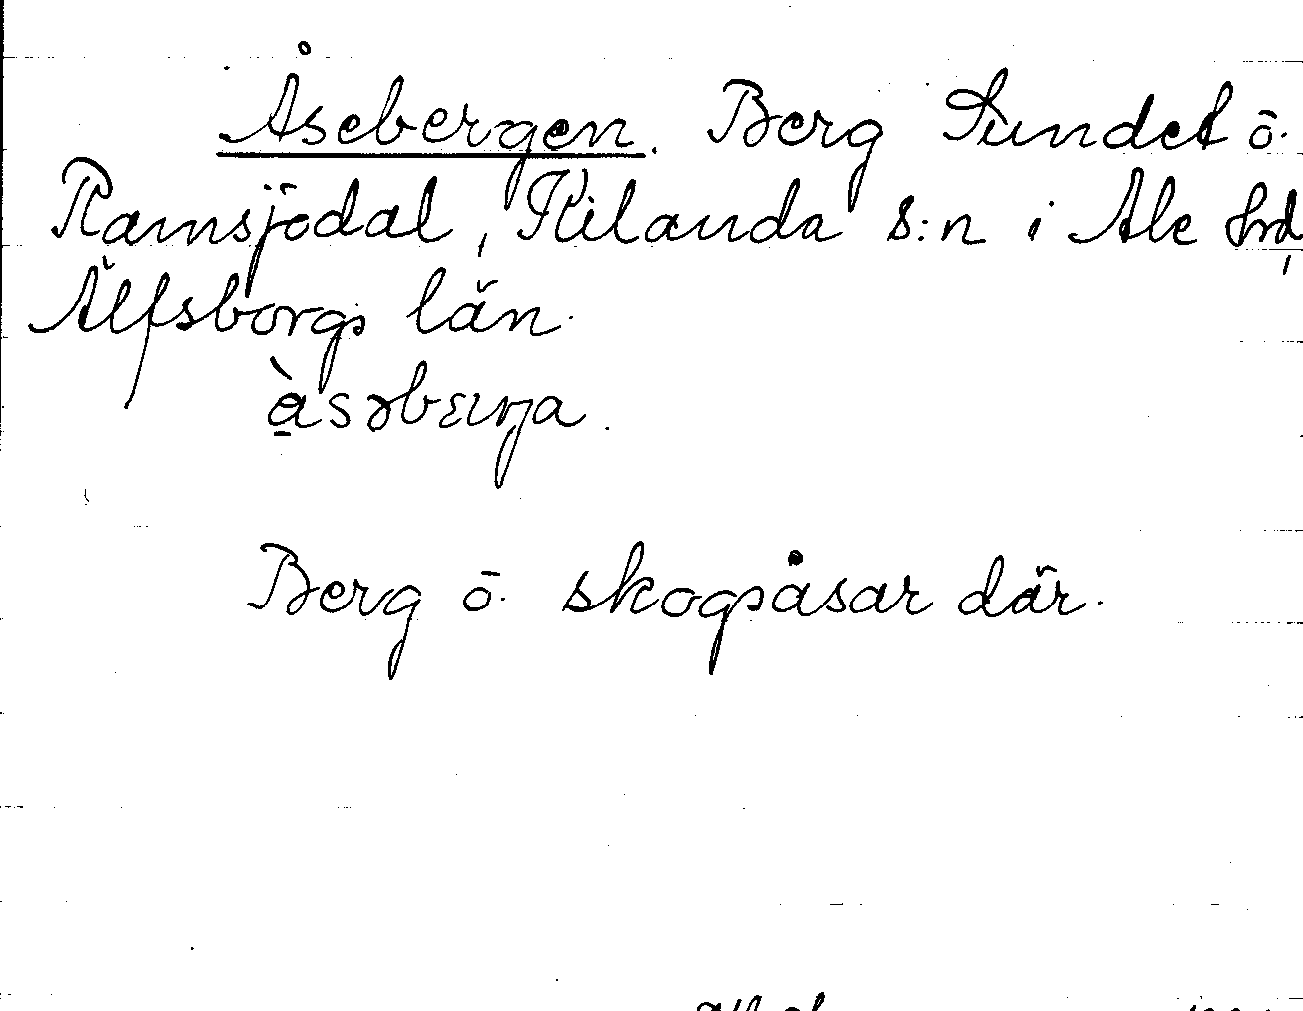 Åsebergen. Berg Sundet ō.
Ramsjödal, Kilanda s:n i Ale hrd,
Älfsborgs län.
Berg ō. skogsåsar där.